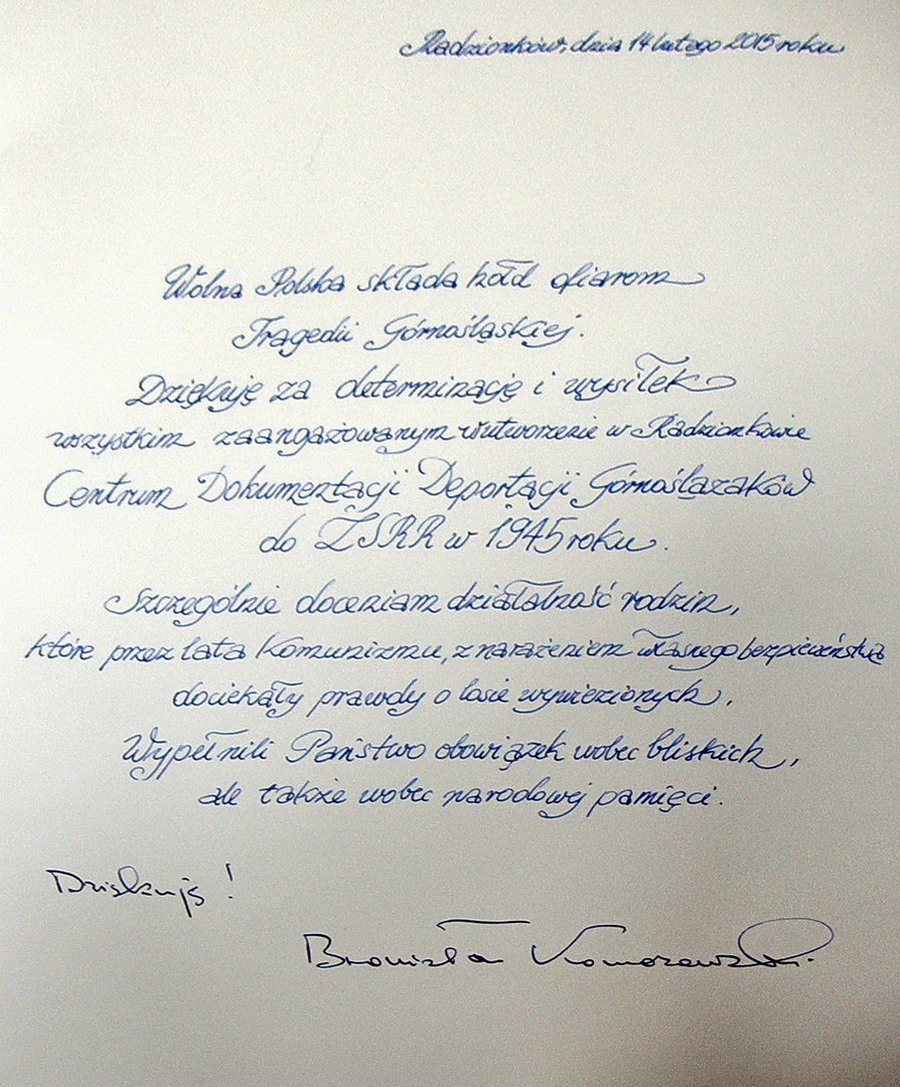 Radzionków, dnia 14 lutego 2015 roku
Wolna Polska składa hołd ofiarom
Tragedii Górnośląskiej.
Dziękuję za determinację i wysiłek
wszystkim zaangażowanym w utworzenie w Radzionkowie
Centrum Dokumentacji Deportacji Górnoślązaków
do ZSRR w 1945 roku.
Szczególnie doceniam działalność rodzin,
które przez lata komunizmu, z narażeniem własnego bezpieczeństwa
dociekały prawdy o losie wywiezionych.
Wypełnili Państwo obowiązek wobec bliskich,
ale także wobec narodowej pamięci.
Dziękuję!
Bronisław Komorowski